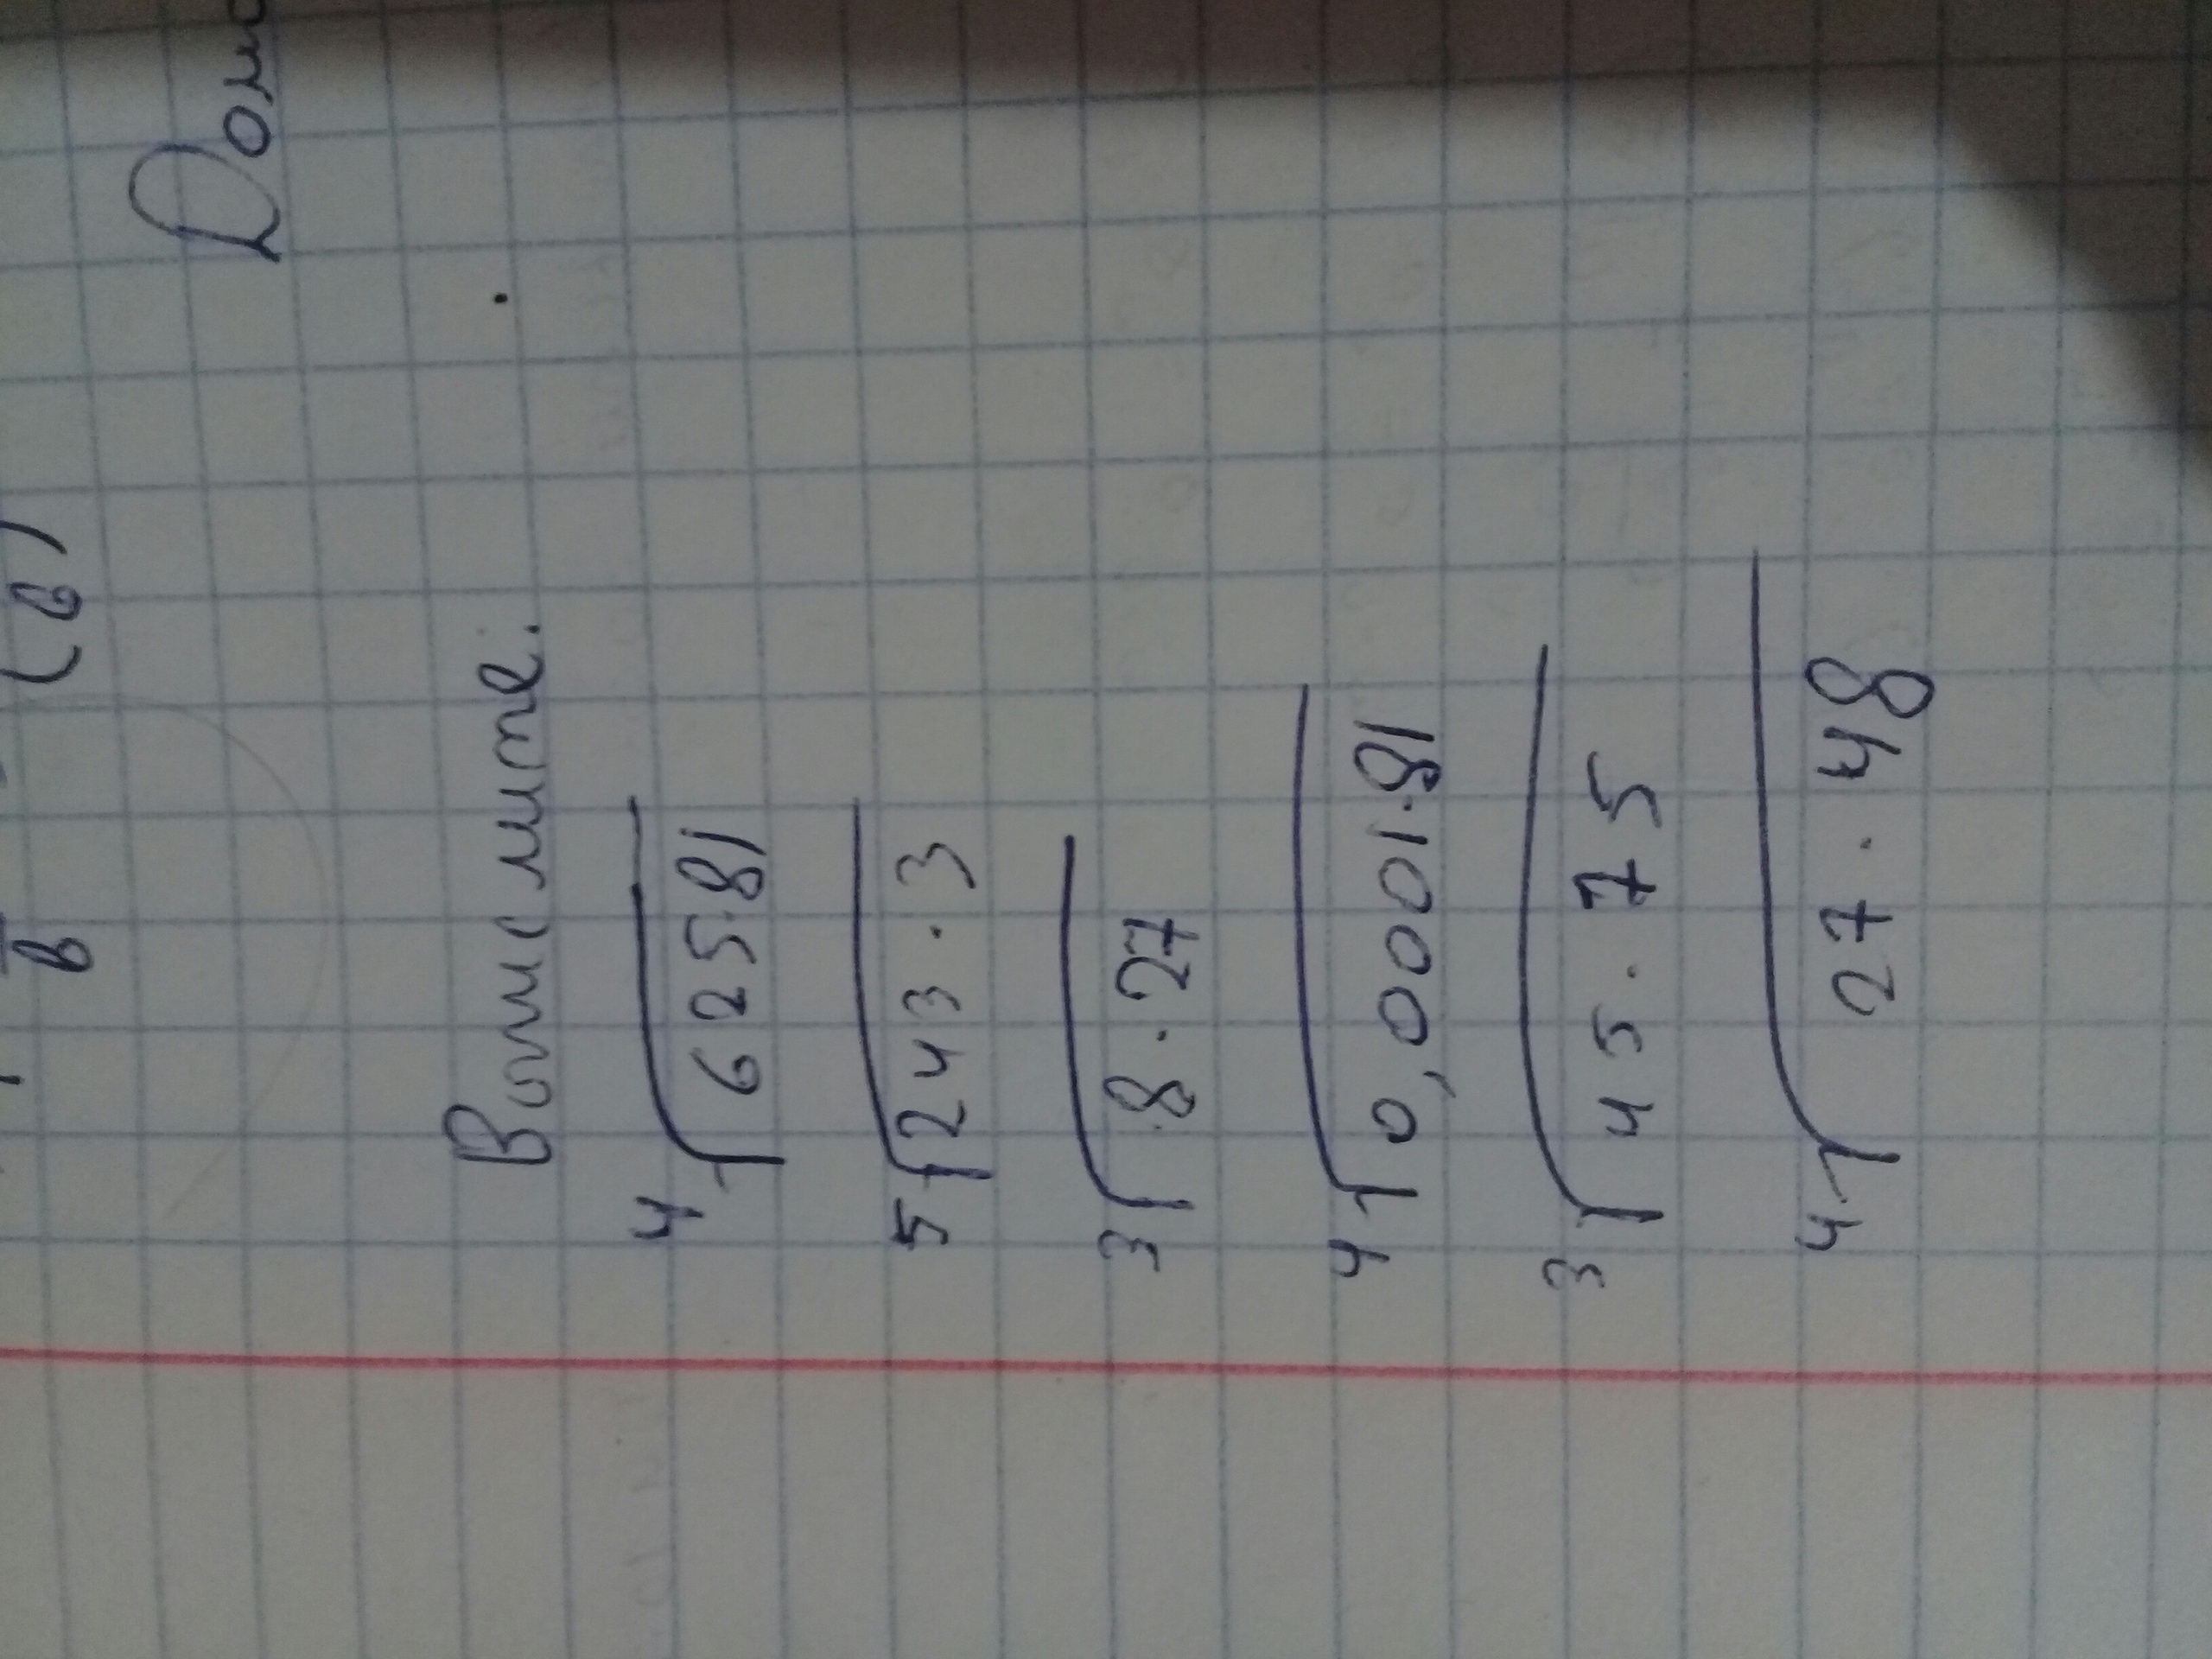 (в)
в
Вычислить.
⁴√625·81
⁵√243·3
³√8·27
⁴√0,0001·81
³√45·75
⁴√27·48